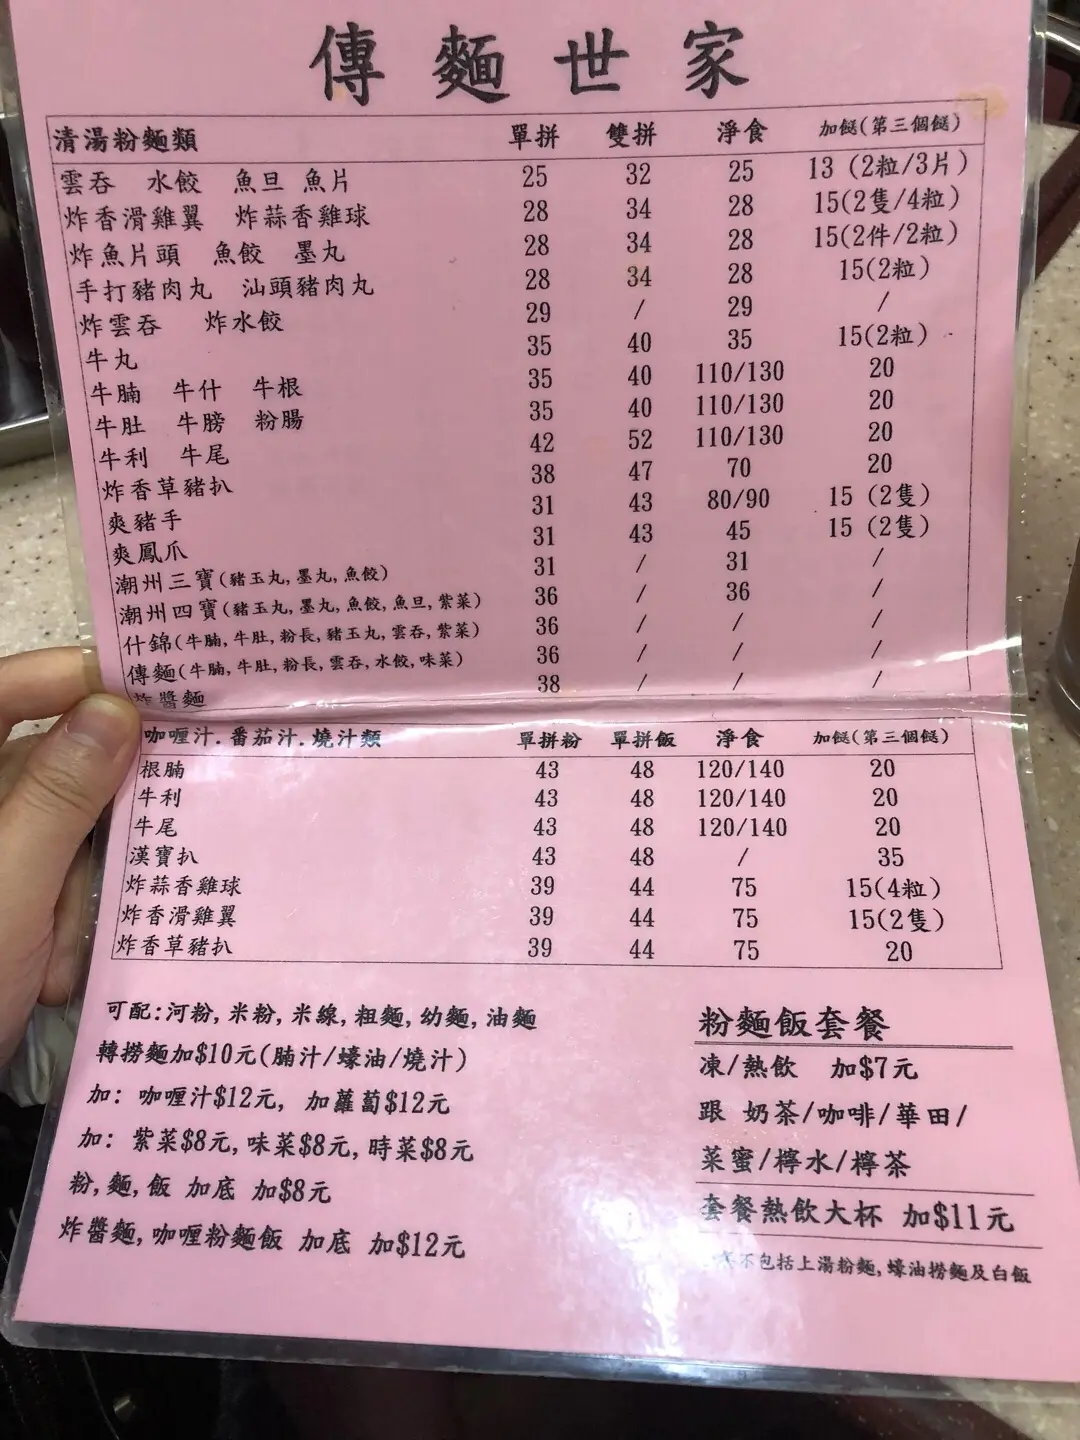 傳麵世家
清湯粉麵類 單拼 雙拼 淨食 加餸(第三個餸)
雲吞 水餃 魚旦 魚片 25 32 25 13 (2粒/3片)
炸香滑雞翼 炸蒜香雞球 28 34 28 15(2隻/4粒)
炸魚片頭 魚餃 墨丸 28 34 28 15(2件/2粒)
手打豬肉丸 汕頭豬肉丸 28 34 28 15(2粒)
炸雲吞 炸水餃 29 / 29 /
牛丸 35 40 35 15(2粒)
牛腩 牛什 牛根 35 40 110/130 20
牛肚 牛膀 粉腸 35 40 110/130 20
牛利 牛尾 42 52 110/130 20
炸香草豬扒 38 47 70 20
爽豬手 31 43 80/90 15 (2隻)
爽鳳爪 31 43 45 15 (2隻)
潮州三寶(豬玉丸,墨丸,魚餃) 31 / 31 /
潮州四寶(豬玉丸,墨丸,魚餃,魚旦,紫菜) 36 / 36 /
什錦(牛腩,牛肚,粉長,豬玉丸,雲吞,紫菜) 36 / / /
傳麵(牛腩,牛肚,粉長,雲吞,水餃,味菜) 36 / / /
炸醬麵 38 / / /
咖喱汁.番茄汁.燒汁類 單拼粉 單拼飯 淨食 加餸(第三個餸)
根腩 43 48 120/140 20
牛利 43 48 120/140 20
牛尾 43 48 120/140 20
漢寶扒 43 48 / 35
炸蒜香雞球 39 44 75 15(4粒)
炸香滑雞翼 39 44 75 15(2隻)
炸香草豬扒 39 44 75 20
可配:河粉,米粉,米線,粗麵,幼麵,油麵
轉撈麵加$10元(腩汁/蠔油/燒汁)
加: 咖喱汁$12元, 加蘿蔔$12元
加: 紫菜$8元,味菜$8元,時菜$8元
粉,麵,飯 加底 加$8元
炸醬麵,咖喱粉麵飯 加底 加$12元
粉麵飯套餐
凍/熱飲 加$7元
跟 奶茶/咖啡/華田/
菜蜜/檸水/檸茶
套餐熱飲大杯 加$11元
不包括上湯粉麵,蠔油撈麵及白飯